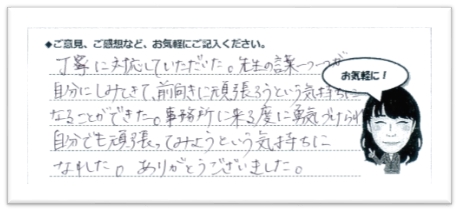 ◆ご意見、ご感想など、お気軽にご記入ください。
お気軽に!
丁寧に対応していただいた。先生の言葉一つ一つが
自分にしみてきて、前向きに頑張ろうという気持ちに
なることができた。事務所に来る度に勇気づけられ
自分でも頑張ってみようという気持ちに
なれた。ありがとうございました。